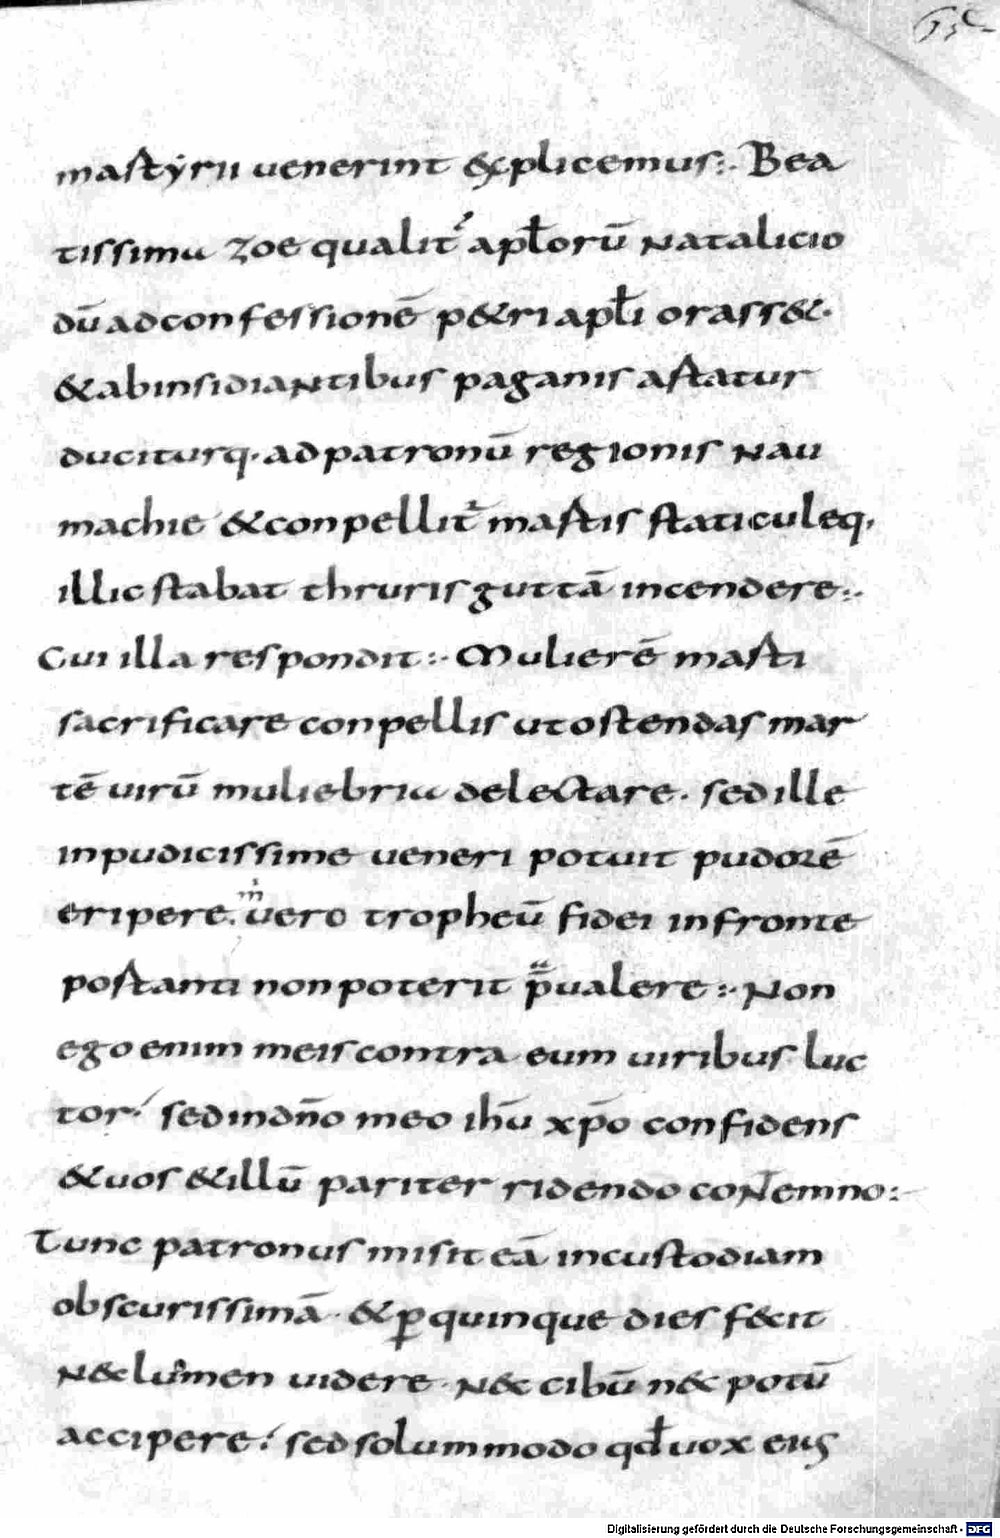 martẏrii uenerint &plicemus:· Bea
tissima zoe qualit᷑ apłorū natalicio
dū ad confessionē p&ri apłi orass&·
& ab insidiantibus paganis artatur
duciturq· ad patronū regionis nau
machie & conpellit᷑ martis staticuleq,
illic stabat thruris guttā incendere:·
Cui illa respondit:· Mulierē marti
sacrificare conpellis ut ostendas mar
tē uirū muliebria delectare· sed ille
inpudicissime ueneri potuit pudorē
eripere. ṁ uero tropheū fidei in fronte
portanti non poterit p̄ualere:· Non
ego enim meis contra eum uiribus luc
tor·́ sed in dño meo ihū xp̄o confidens
& uos & illū pariter ridendo contemno:
Tunc patronus misit eā in custodiam
obscurissimā· & ꝑ quinque dies fecit
nec lumen uidere· nec cibū nec potū
accipere·́ sed solummodo qđ uox eiꝰ
Digitalisierung gefördert durch die Deutsche Forschungsgemeinschaft - DFG